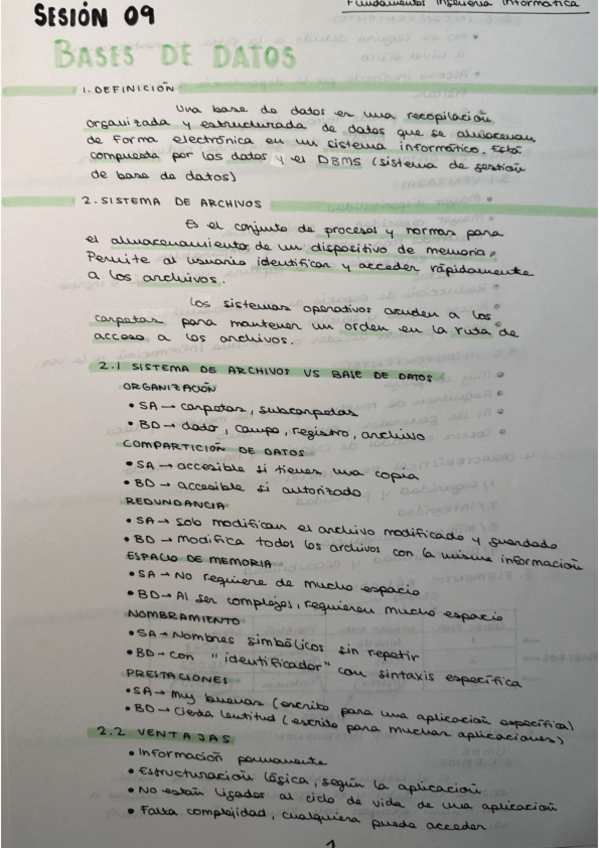 Fundamentos Ingeniería Informática
SESIÓN 09
BASES DE DATOS
1. DEFINICIÓN
Una base de datos es una recopilación
organizada y estructurada de datos que se almacenan
de forma electrónica en un sistema informático. Está
compuesta por los datos y el DBMS (sistema de gestión
de base de datos)
2. SISTEMA DE ARCHIVOS
Es el conjunto de procesos y normas para
el almacenamiento de un dispositivo de memoria.
Permite al usuario identificar y acceder rápidamente
a los archivos.
Los sistemas operativos acuden a las
carpetas para mantener un orden en la ruta de
acceso a los archivos.
2.1 SISTEMA DE ARCHIVOS VS BASE DE DATOS
ORGANIZACIÓN
• SA → carpetas, subcarpetas
• BD → dato, campo, registro, archivo
COMPARTICIÓN DE DATOS
• SA → accesible si tienes una copia
• BD → accesible si autorizado
REDUNDANCIA
• SA → solo modifican el archivo modificado y guardado
• BD → Modifica todos los archivos con la misma información
ESPACIO DE MEMORIA
• SA → No requiere de mucho espacio
• BD → Al ser complejos, requieren mucho espacio
NOMBRAMIENTO
• SA → Nombres simbólicos sin repetir
• BD → con "identificador" con sintaxis específica
PRESTACIONES
• SA → Muy buenas (escrito para una aplicación específica)
• BD → Cierta lentitud (escrito para muchas aplicaciones)
2.2 VENTAJAS
• Información permanente
• Estructuración lógica, según la aplicación
• No están ligados al ciclo de vida de una aplicación
• Falta complejidad, cualquiera puede acceder
1